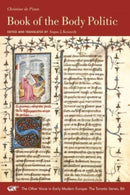 Christine de Pizan
Book of the Body Politic
EDITED AND TRANSLATED BY Angus J. Kennedy
The Other Voice in Early Modern Europe: The Toronto Series, 84